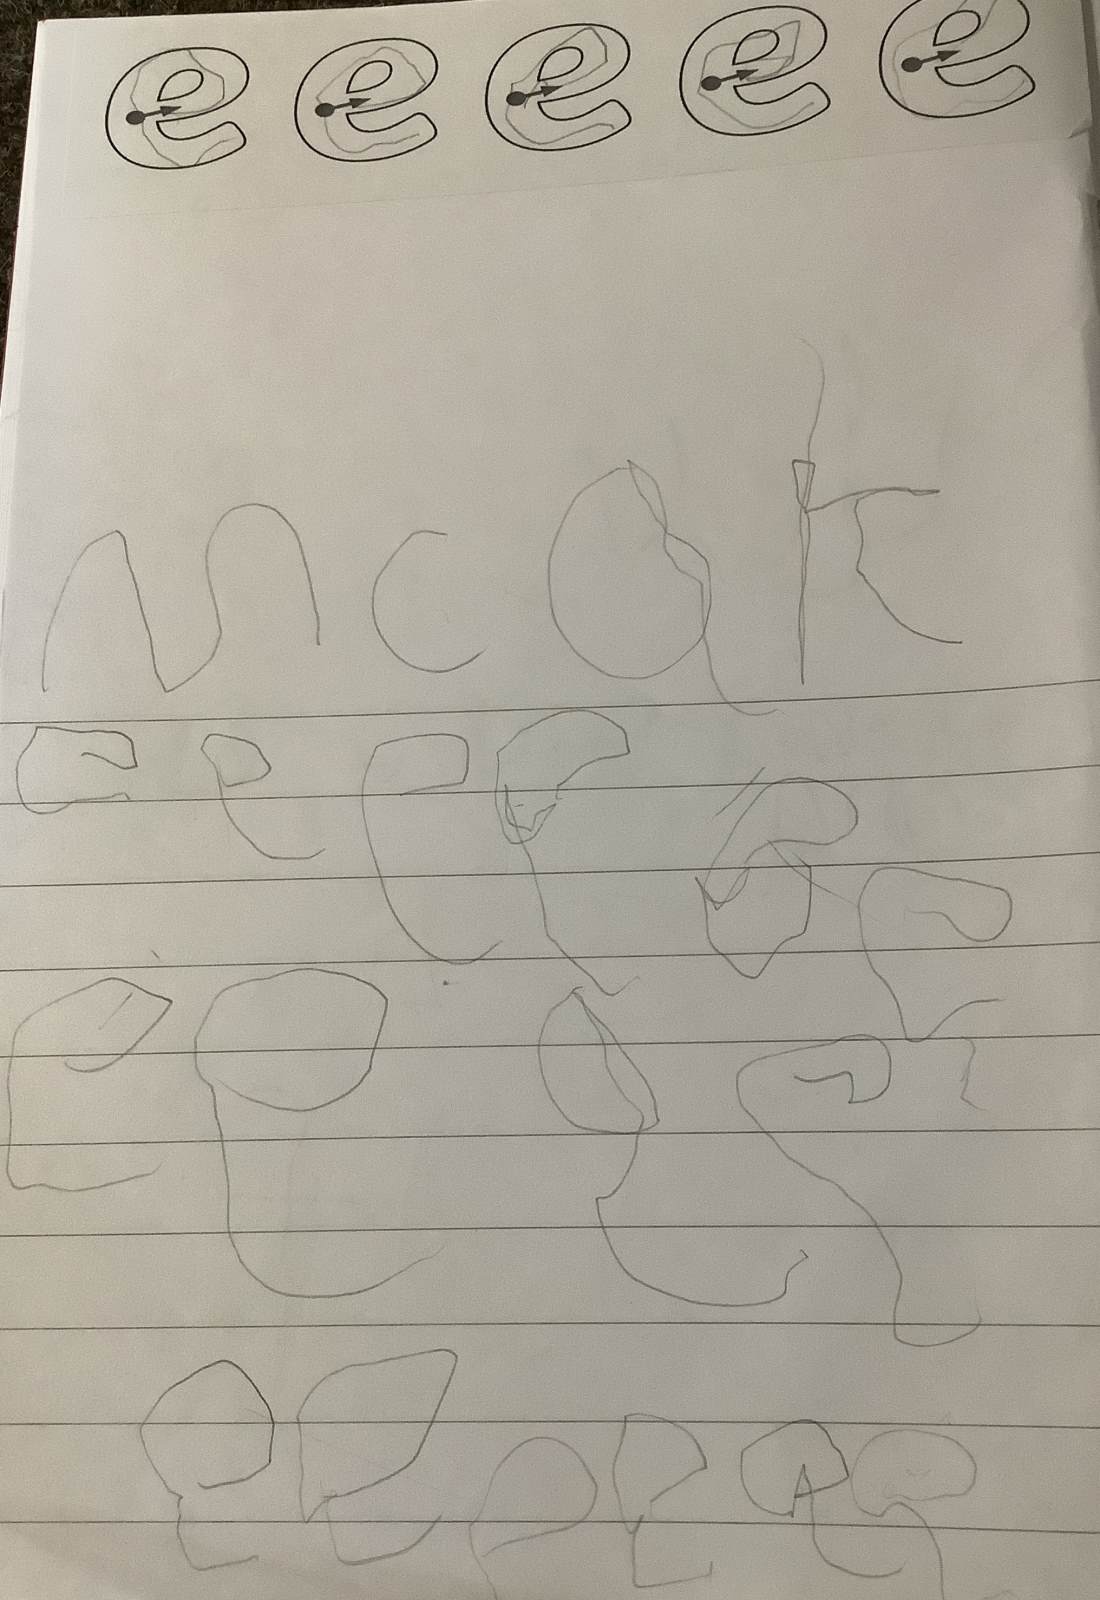 e e e e e
m c a k
e e e e e e
e e e e
e e e e e e